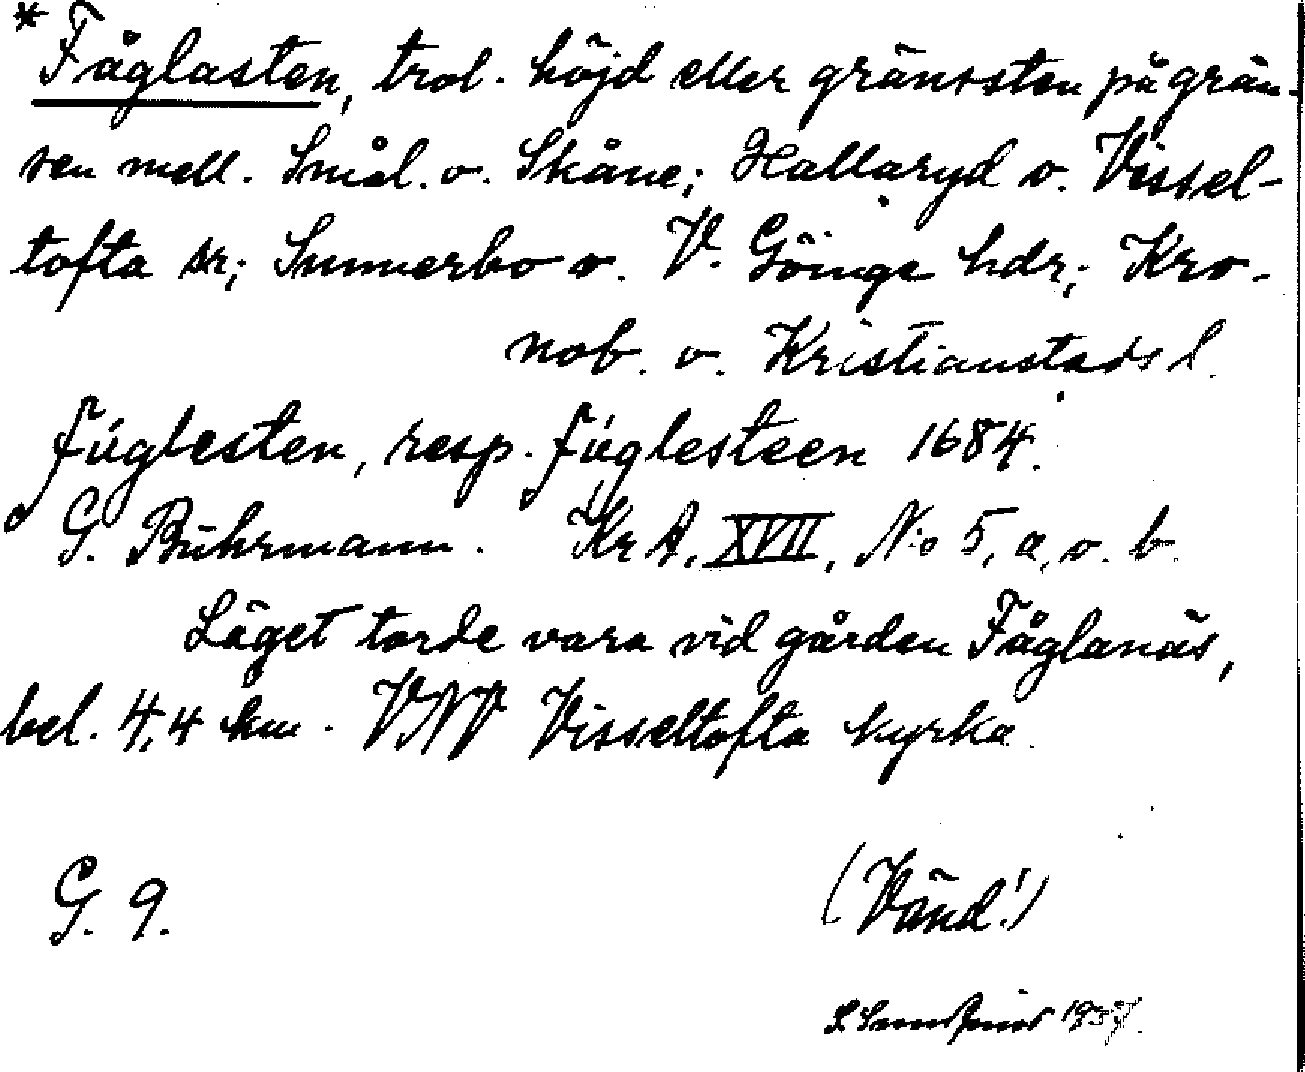 * Fåglasten, trol. höjd eller gränssten på grän-
sen mell. Smål. o. Skåne; Hallaryd o. Vissel-
tofta sr; Sunnerbo o. V. Göinge hdr; Kro-
nob. o. Kristianstads l.
fúglesten, resp. fúglesteen 1684.
G. Buhrmann. KrA, XVII, No 5, a, o. b.
Läget torde vara vid gården Fåglanäs,
bel. 4,4 km. VNV Visseltofta kyrka.
G. 9.
(Vänd!)